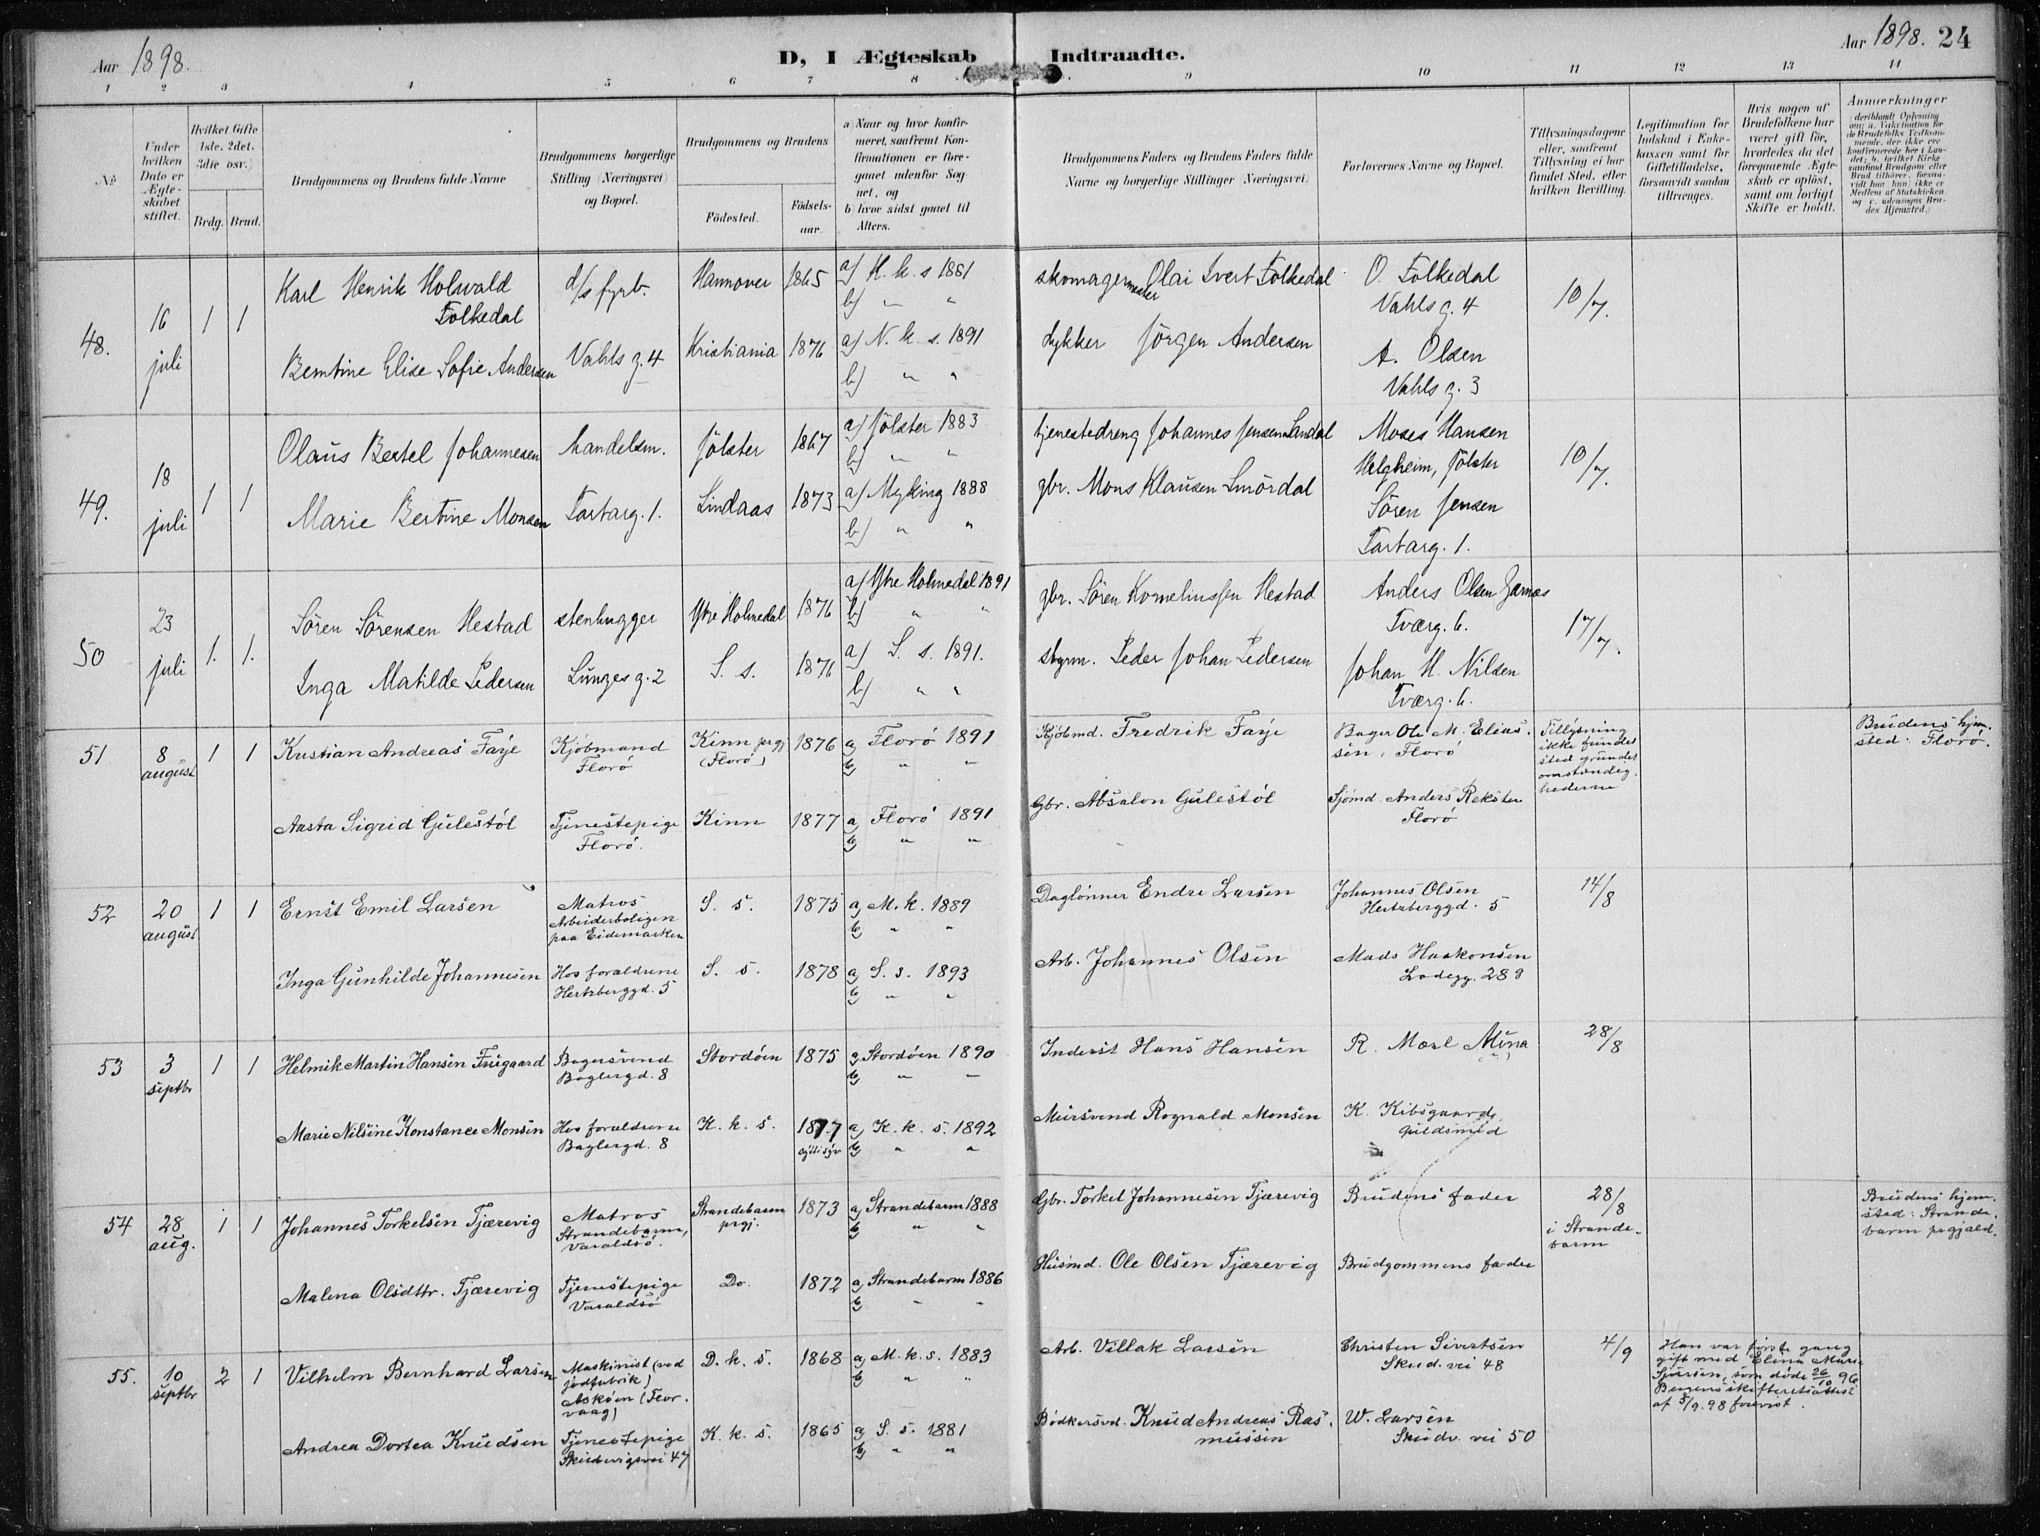 Aar 1898.
D, I Ægteskab Indtraadte.
Aar 1898. 24
1 2 3 4 5 6 7 8 9 10 11 12 13 14
No.
Under hvilken Dato er Ægteskabet stiftet.
Hvilket Gifte (1ste, 2det, 3die osv.)
Brdg. Brud.
Brudgommens og Brudens fulde Navne
Brudgommens borgerlige Stilling (Næringsvei) og Bopæl.
Brudgommens og Brudens
Födested.
Födselsaar.
a) Naar og hvor konfirmeret, saafremt Konfirmationen er foregaaet udenfor Sognet, og
b) hvor sidst gaaet til Alters.
Brudgommens Faders og Brudens Faders fulde Navne og borgerlige Stillinger (Næringsvei)
Forlovernes Navne og Bopæl.
Tillysningsdagene eller, saafremt Tillysning ei har fundet Sted, efter hvilken Bevilling.
Legitimation for Indskud i Enkekassen samt for Giftetilladelse, forsaavidt saadan tiltrænges.
Hvis nogen af Brudefolkene har været gift før, hvorledes da det foregaaende Ægteskab er opløst, samt om lovligt Skifte er holdt.
Anmærkninger
48. 16 juli 1 1
Karl Henrik Holvald Folkedal
d/s fyrb.
Hannover 1865
a) H. k. s 1881
b) " "
skomagermester Olai Ivert Folkedal
O. Folkedal
Vahls g. 4
10/7.
Berntine Elise Sofie Andersen
Vahls g. 4
Kristiania 1876
a) N. k. s. 1891
b) " "
dykker Jörgen Andersen
A. Olsen
Vahls g. 3
49. 18 juli 1 1
Olaus Bertel Johannesen
handelsm.
Jölster 1867
a) Jölster 1883
b) " "
tjenestedreng Johannes Jensen Sandal
Moses Hansen
Helgheim, Jölster
10/7.
Marie Bertine Monsen
Tartarg. 1.
Lindaas 1873
a) Myking 1888
b) " "
gbr. Mons Klausen Smördal
Sören Jensen
Tartarg. 1.
50 23 juli 1. 1.
Sören Sörensen Hestad
stenhugger
Ytre Holmedal 1876
a) Ytre Holmedal 1891
b) " "
gbr. Sören Kornelinssen Hestad
Anders Olsen Garnæs
Tværg. 6.
17/7.
Inga Matilde Pedersen
Lunges g. 2
S. s. 1871
a) S. s. 1891.
b) " "
styrm. Peder Johan Pedersen
Johan H. Nilsen
Tværg. 6.
51 8 august 1 1
Kristian Andreas Faye
Kjöbmand
Florö
Kinn prgj (Florö) 1876
a) Florö 1891
b) " "
Kjöbmd. Fredrik Faye
Bager Ole M. Eliassen, Florö
Tillysning ikke fundet sted grundet omstændighederne
Brudens hjemsted: Florö.
Aasta Sigrid Gulestöl
Tjenestepige
Florö.
Kinn 1877
a) Florö 1891
b) " "
Gbr. Absalon Gulestöl
Sjömd. Anders Reksten
Florö
52 20 august 1 1
Ernst Emil Larsen
Matros
Arbeiderboligen
paa Eidemarken
S. s. 1875
a) M. k. 1889
b) " "
Daglönner Endre Larsen
Johannes Olsen
Hertzberggd. 5
14/8
Inga Gunhilde Johannesen
Hos forældrene
Hertzberggd. 5
S. s. 1878
a) S. s. 1893
b) " "
Arb. Johannes Olsen
Mads Haakonsen
Ladegg. 289
53 3 septbr 1 1
Helmik Martin Hansen Frugaard
Bagersvend
Baglergd. 8
Stordöen 1875
a) Stordöen 1890
b) " "
Inderst Hans Hansen
28/8
Marie Nilsine Konstance Monsen
Hos forældrene
Baglergd. 8
K. k. s. 1877
a) K. k. s. 1892
b) " "
Mursvend Rognald Monsen
K. Kibsgaard,
guldsmed
54 28 aug. 1 1
Johannes Torkelsen Tjærevig
Matros
Strandebarm,
Varaldsö.
Strandebarm prgj. 1873
a) Strandebarm 1888
b) " "
Gbr. Torkel Johannesen Tjærevig
Brudens fader
28/8
i Strandebarm
Brudens hjemsted: Strandebarm prgjæld.
Malena Olsdttr. Tjærevig
Tjenestepige
Varaldsö
Do. 1872
a) Strandebarm 1886
b) " "
Husmd. Ole Olsen Tjærevig
Brudgommens fader
55. 10 septbr 2 1
Vilhelm Bernhard Larsen
Maskinist (ved
jodfabrik)
Asköen (Florvaag)
D. k. s. 1868
a) M. k. s. 1883
b) " "
Arb. Villak Larsen
Christen Sivertsen
Skud. vei 48
4/9
Han var förste gang
gift med Elena Marie
som döde 26/10 96
af 5/9. 98 forevist.
Andrea Dortea Knudsen
Tjenestepige
Skudevigsvei 47
K. k. s. 1865
a) S. s. 1881
b) " "
Bödkersvd. Knud Andreas Rasmussen
W. Larsen
Skudv. vei 50